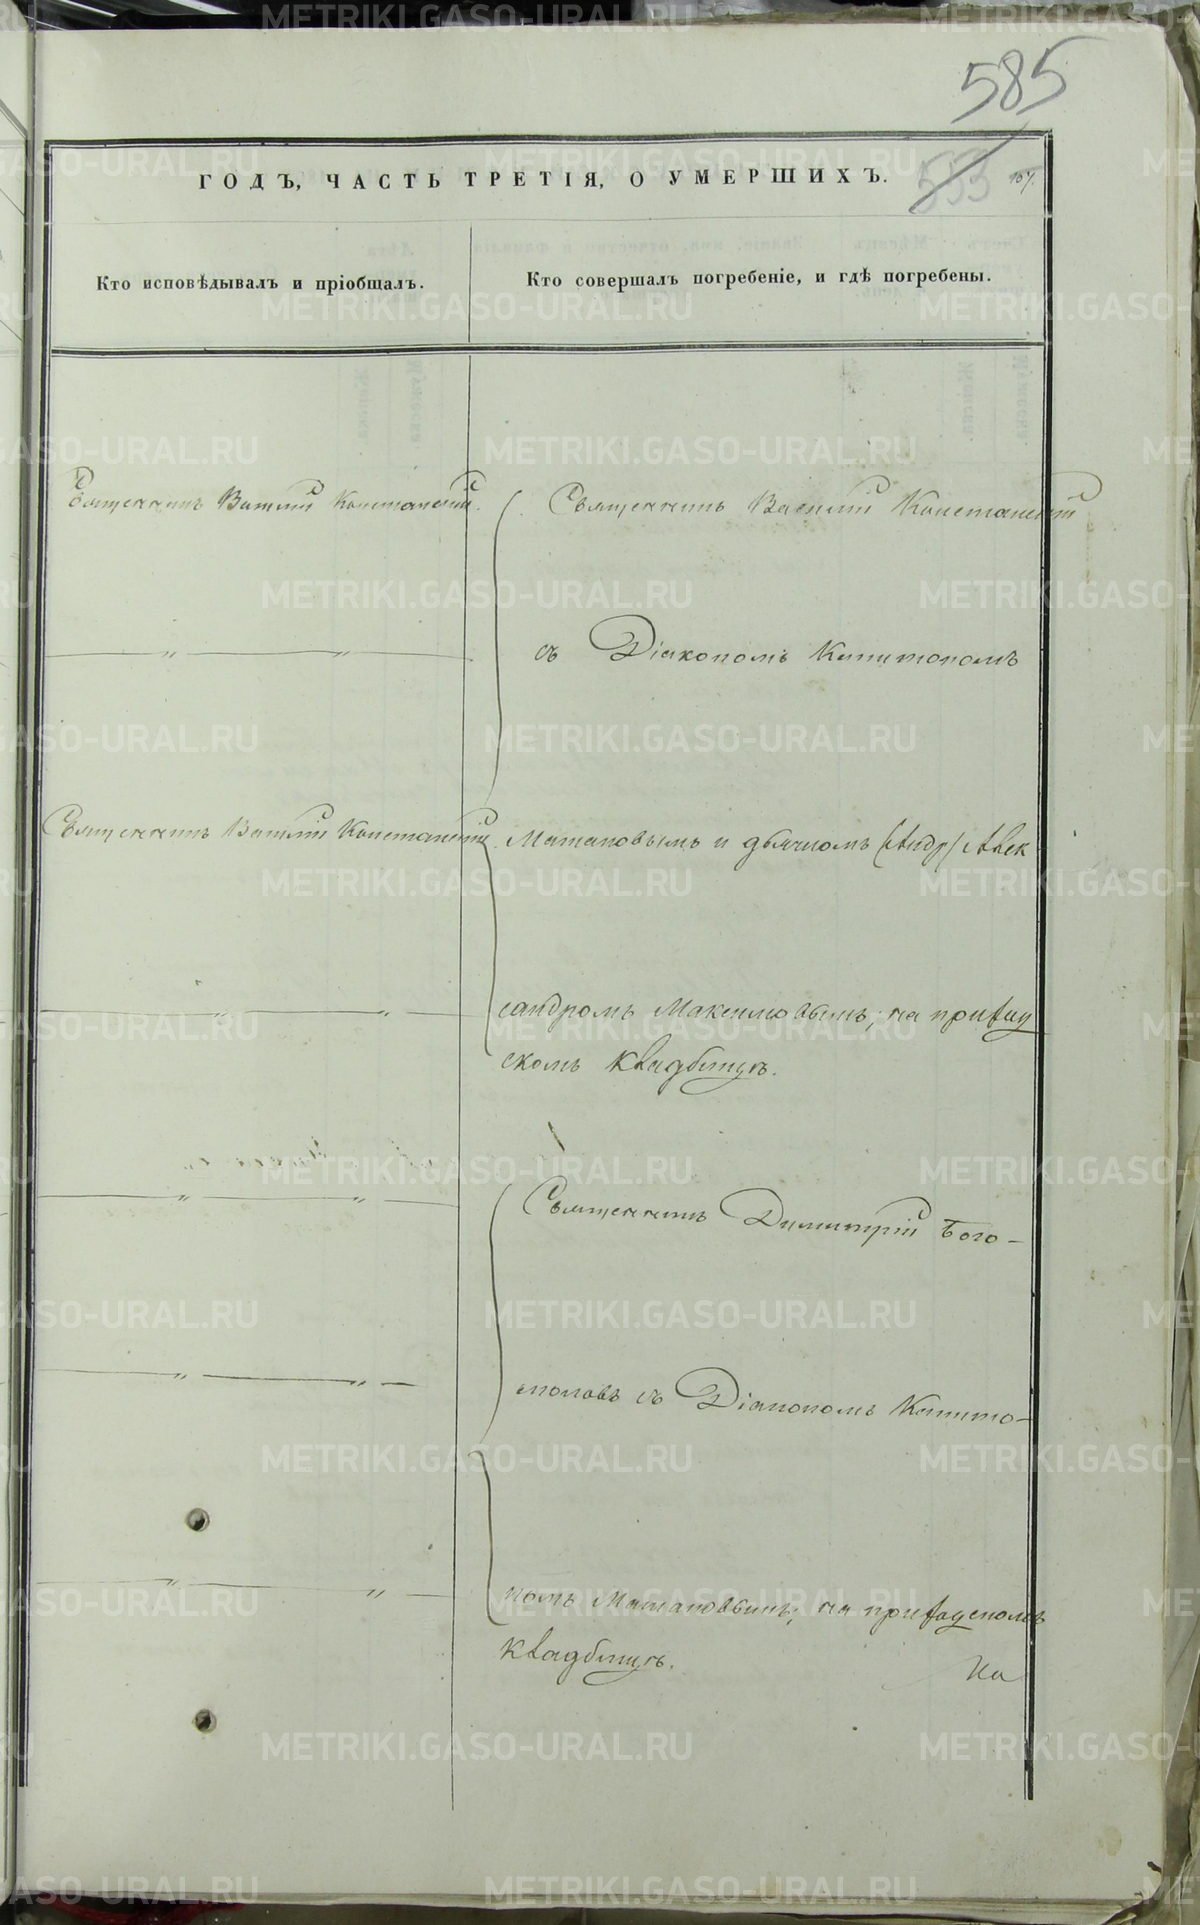 585
ГОДЪ, ЧАСТЬ ТРЕТІЯ, О УМЕРШИХЪ.
533
107.
Кто исповѣдывалъ и пріобщалъ.
Кто совершалъ погребеніе, и гдѣ погребены.
Священникъ Василій Констанскій.
Священникъ Василій Констанскій
съ Діакономъ Капитономъ
Священникъ Василій Констанскій
Матановымъ и дьячкомъ (Андр) Алек
сандромъ Максимовымъ; на приход
скомъ кладбищѣ.
Священникъ Димитрій Бого-
словъ съ Діакономъ Капито-
номъ Матановымъ; на приходскомъ
кладбищѣ.
На
METRIKI.GASO-URAL.RU